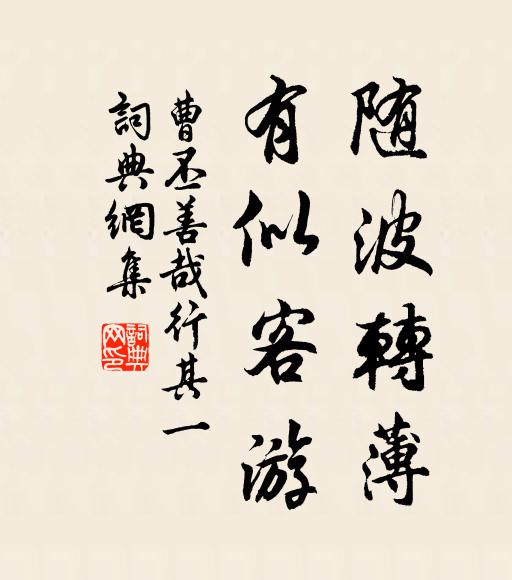 随波轉薄
有似客游
曹丕善哉行其一
詞典網集
詞典网印